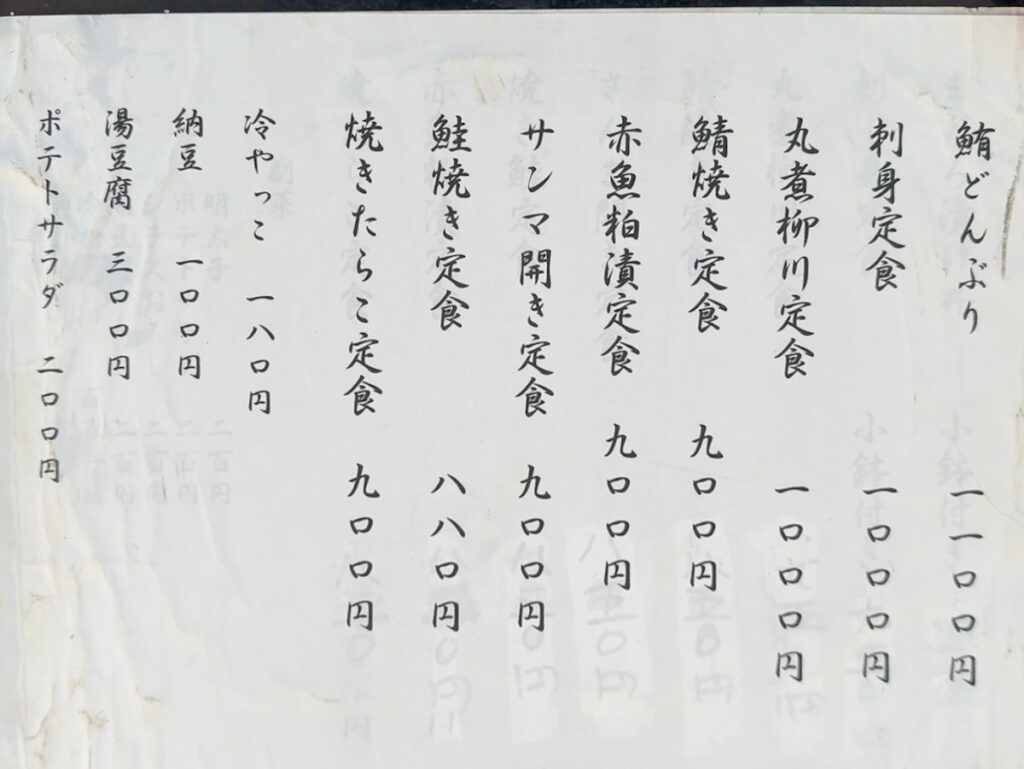 鮪どんぶり 一一〇〇円
刺身定食 一〇〇〇円
丸煮柳川定食 一〇〇〇円
鯖焼き定食 九〇〇円
赤魚粕漬定食 九〇〇円
サンマ開き定食 九〇〇円
鮭焼き定食 八八〇円
焼きたらこ定食 九〇〇円
冷やっこ 一八〇円
納豆 一〇〇円
湯豆腐 三〇〇円
ポテトサラダ 二〇〇円